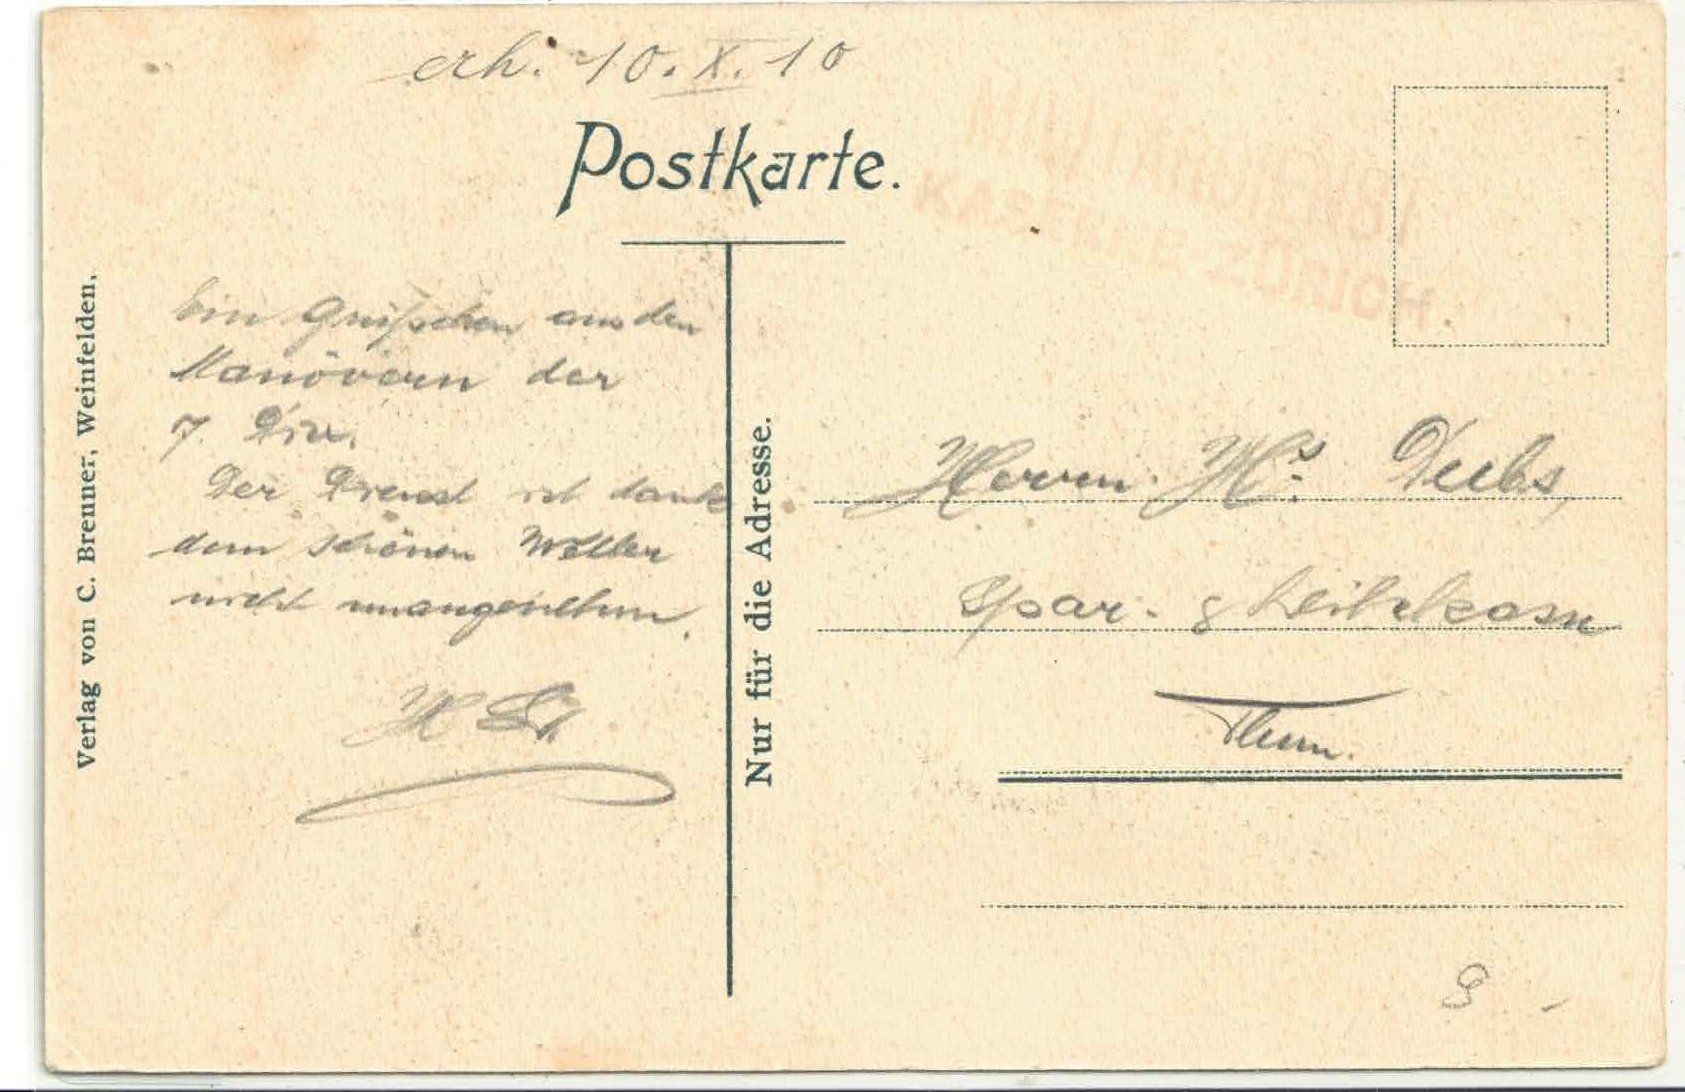 erh. 10. X. 10
Postkarte.
MILITÄRDIENST
KASERNE ZÜRICH
Verlag von C. Brenner, Weinfelden.
Ein Grüsschen aus den
Manövern der
7. Div.
Der Dienst ist dank
dem schönen Wetter
nicht unangenehm.
Nur für die Adresse.
Herrn Hs.
Spar- & Leihkasse
Thun.